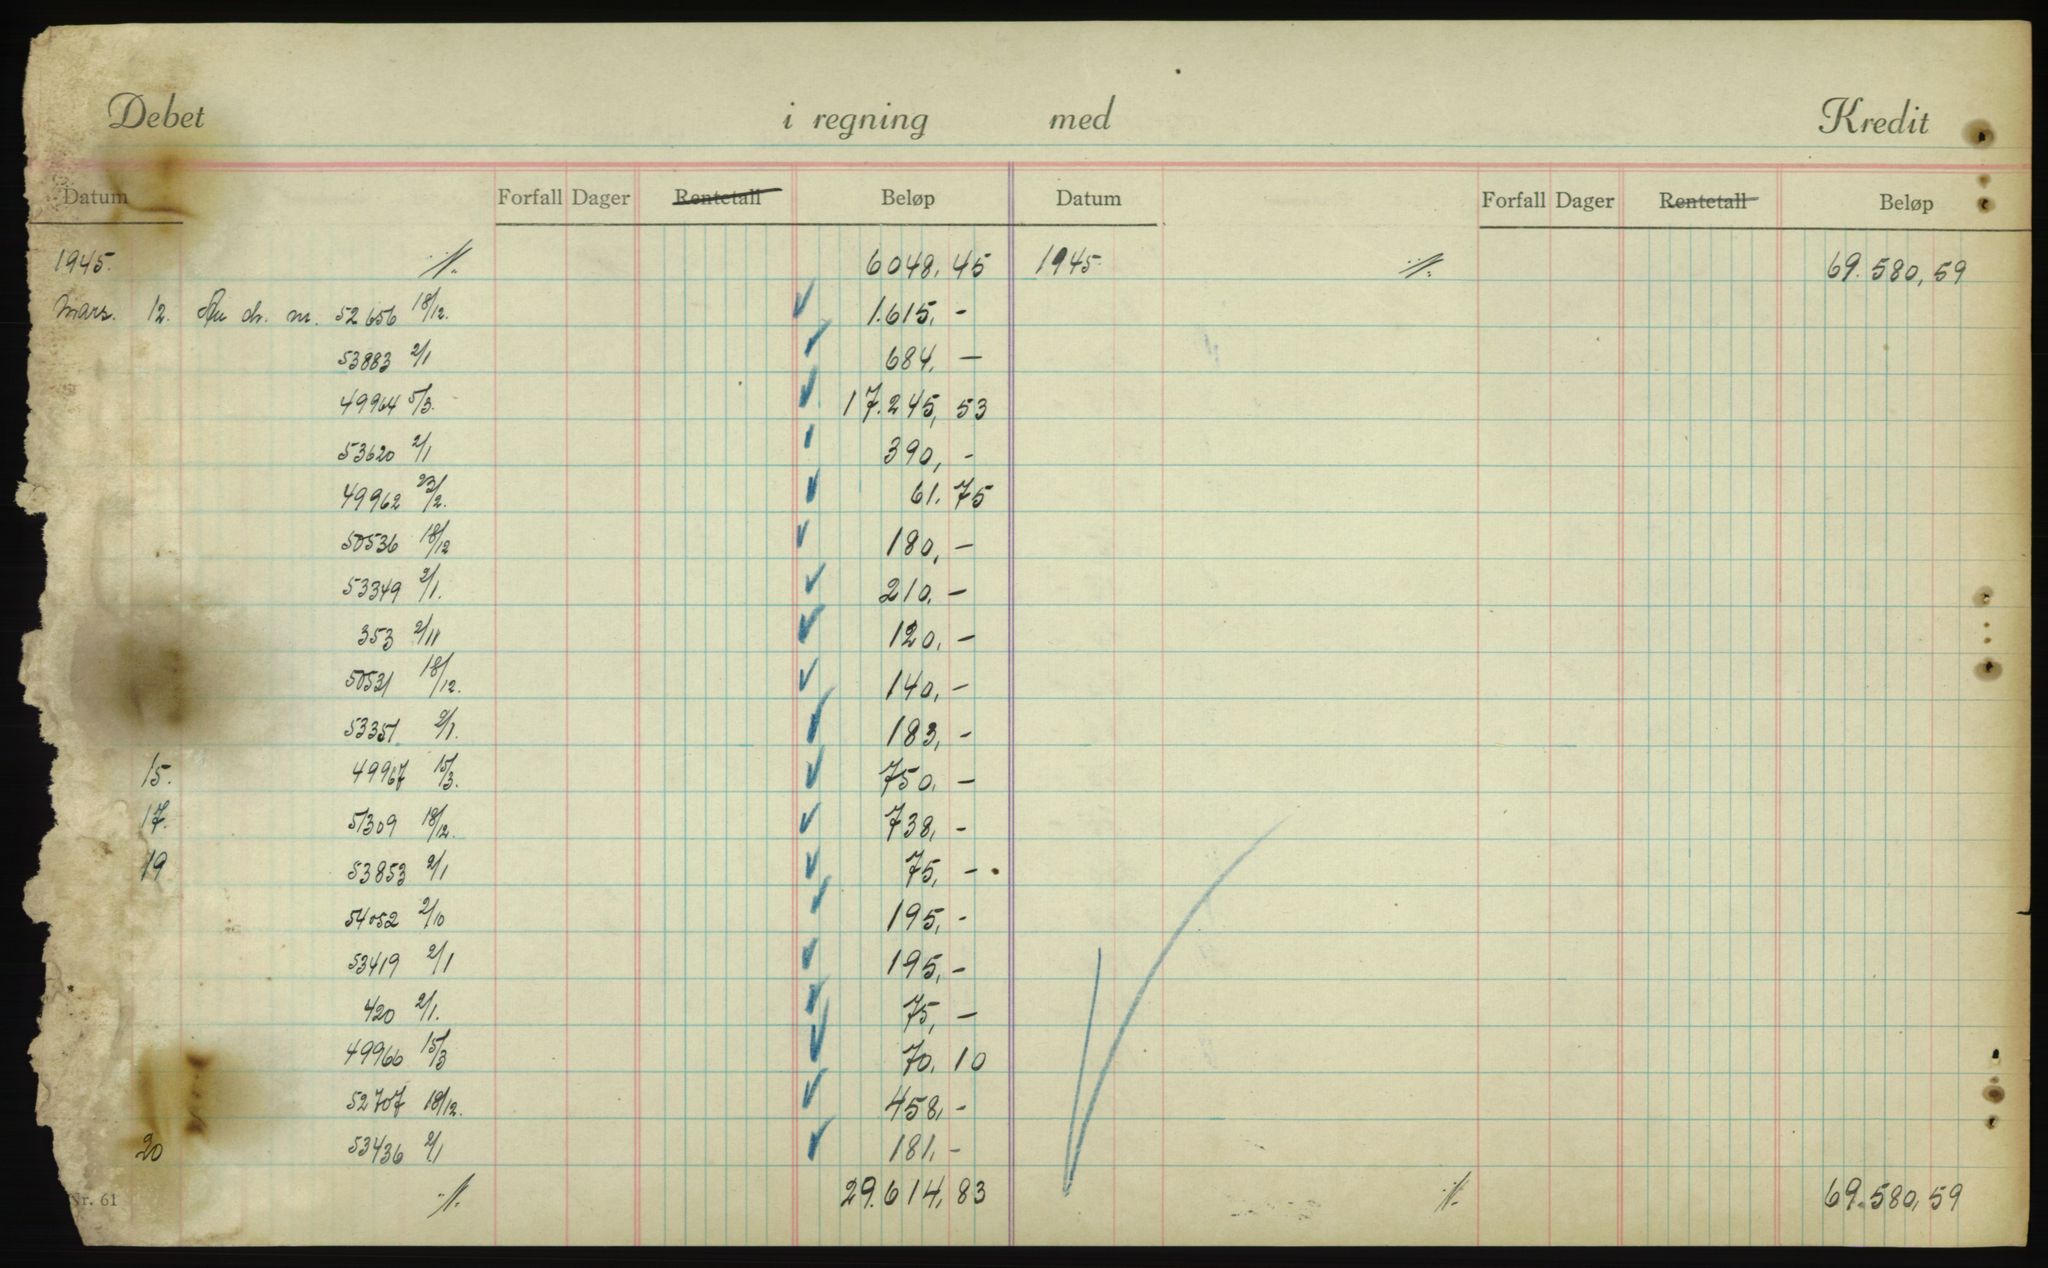 Debet i regning med Kredit
Datum Forfall Dager Rentetall Beløp Datum Forfall Dager Rentetall Beløp
1945. ·//· 6048,45 1945. ·//· 69.580,59
Mars. 12. An ch. nr. 52656 18/12. 1.615,-
53883 2/1 684,—
49964 5/3. 17.245,53
53620 2/1 390,-
49962 23/2. 61.75
50536 18/12 180,—
53349 2/1. 210,—
353 2/11 120,—
50531 18/12. 140,—
53351 2/1. 183,—
15. 49967 15/3. 750,—
17. 51309 18/12. 738,-
19 53853 2/1 75,—
54052 2/10 195,-
53419 2/1 195,-
420 2/1. 75,—
49966 15/3 70,10
52707 18/12. 458,-
20 53436 2/1 181,-
Nr. 61 ·//· 29.614,83 ·//· 69.580,59